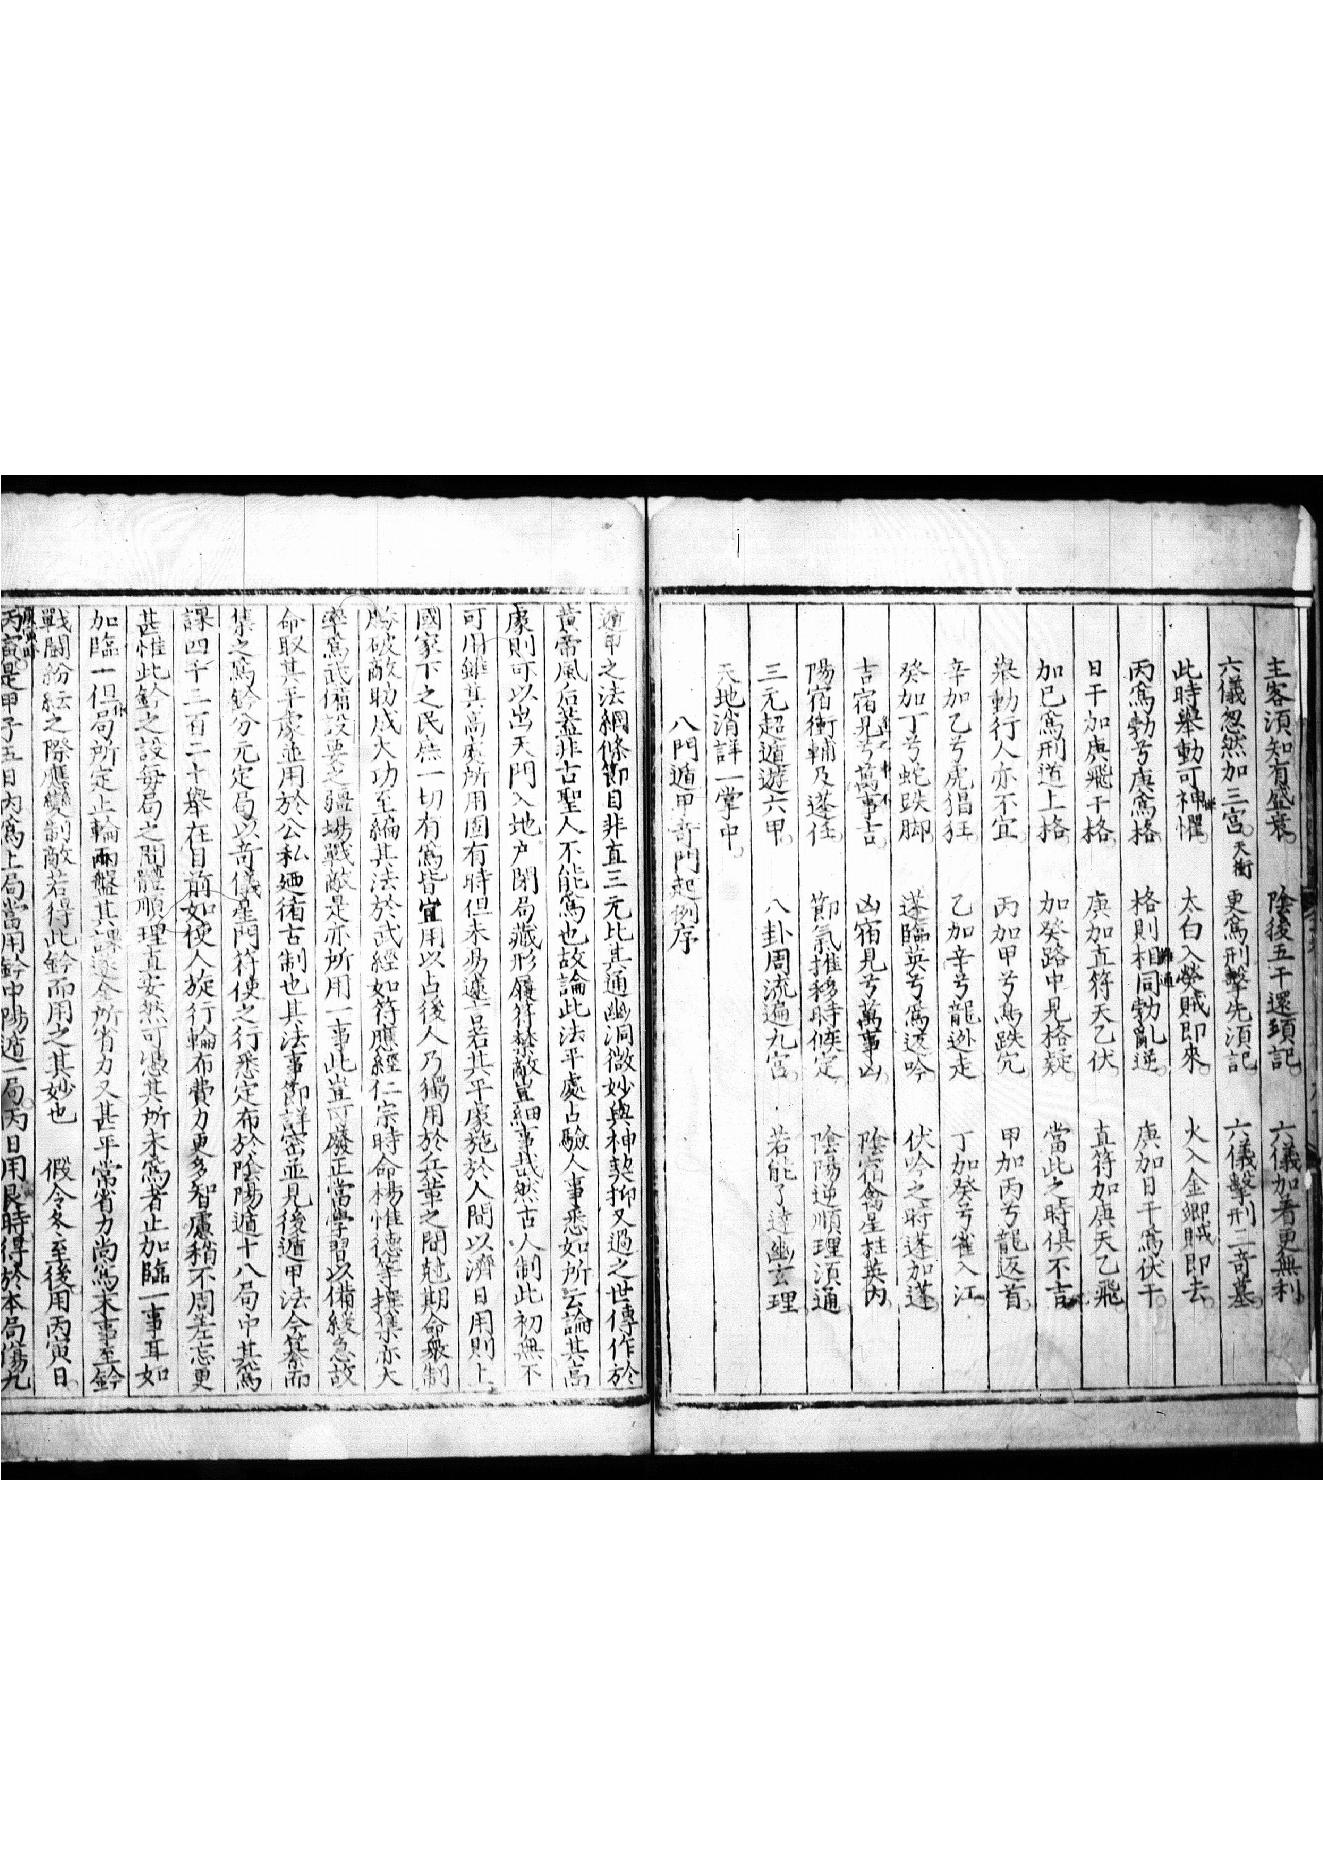 主客須知有盛衰 陰後五干還頭記 六儀加看更無利
六儀忽然加三宮 天衝 更為刑擊先須記 六儀擊刑二奇墓
此時舉動可神懼 太白入熒賊即來 火入金鄉賊即去
丙為勃兮庚為格 格則相同勃乱逆 庚加日干為伏干
日干加庚飛干格 庚加直符天乙伏 直符加庚天乙飛
加己為刑道上格 加癸路中見格疑 當此之時俱不吉
舉動行人亦不宜 丙加甲兮鳥跌穴 甲加丙兮龍返首
辛加乙兮虎猖狂 乙加辛兮龍逃走 丁加癸兮雀入江
癸加丁兮蛇跌脚 蓬臨英兮為返吟 伏吟之時蓬加蓬
吉宿見兮萬事吉 凶宿見兮萬事凶 陰宿禽星柱英內
陽宿衝輔及蓬任 節氣推移時候定 陰陽逆順理須通
三元超遁遊六甲 八卦周流遍九宮 若能了達幽玄理
天地消詳一掌中
八門遁甲奇門起例序
遁甲之法綱條節目非直三元比其通幽洞微妙與神契抑又過之世傳作於
黃帝風后蓋非古聖人不能為也故論此法平處占驗人事悉如所云論其高
處則可以出天門入地戶閉局藏形履符禁敵豈細事哉然古人制此初無不
可用雖其高處所用固有時但未易遽言若其平處施於人間以濟日用則上
國家下之民庶一切有為皆宜用以占後人乃獨用於兵革之間兢期命衆制
勝破敵助成大功至編其法於武經如符應經仁宗時命楊惟德等撰集亦大
率為武備設要之疆場戰敵是亦所用一事此豈可廢正當學習以備緩急故
命取其平處並用於公私廼術古制也其法事節詳密並見後遁甲法今纂而
集之為鈐分元定局以奇儀星門符使之行悉定布於陰陽遁十八局中其為
課四千三百二十舉在目前如使人旋行輪布費力更多智慮稍不周差忘更
甚惟此鈐之設每局之間體順理直安然可憑其所未為者止加臨一事耳如
加臨一但局所定止輪兩盤其課遂全所省力又甚平常省力尚為末事至鈐
戰鬬紛紜之際應變制敵若得此鈐而用之其妙也 假令冬至後用丙寅日
丙寅是甲子五日內為上局當用鈐中陽遁一局丙日用艮時得於本局蕩九